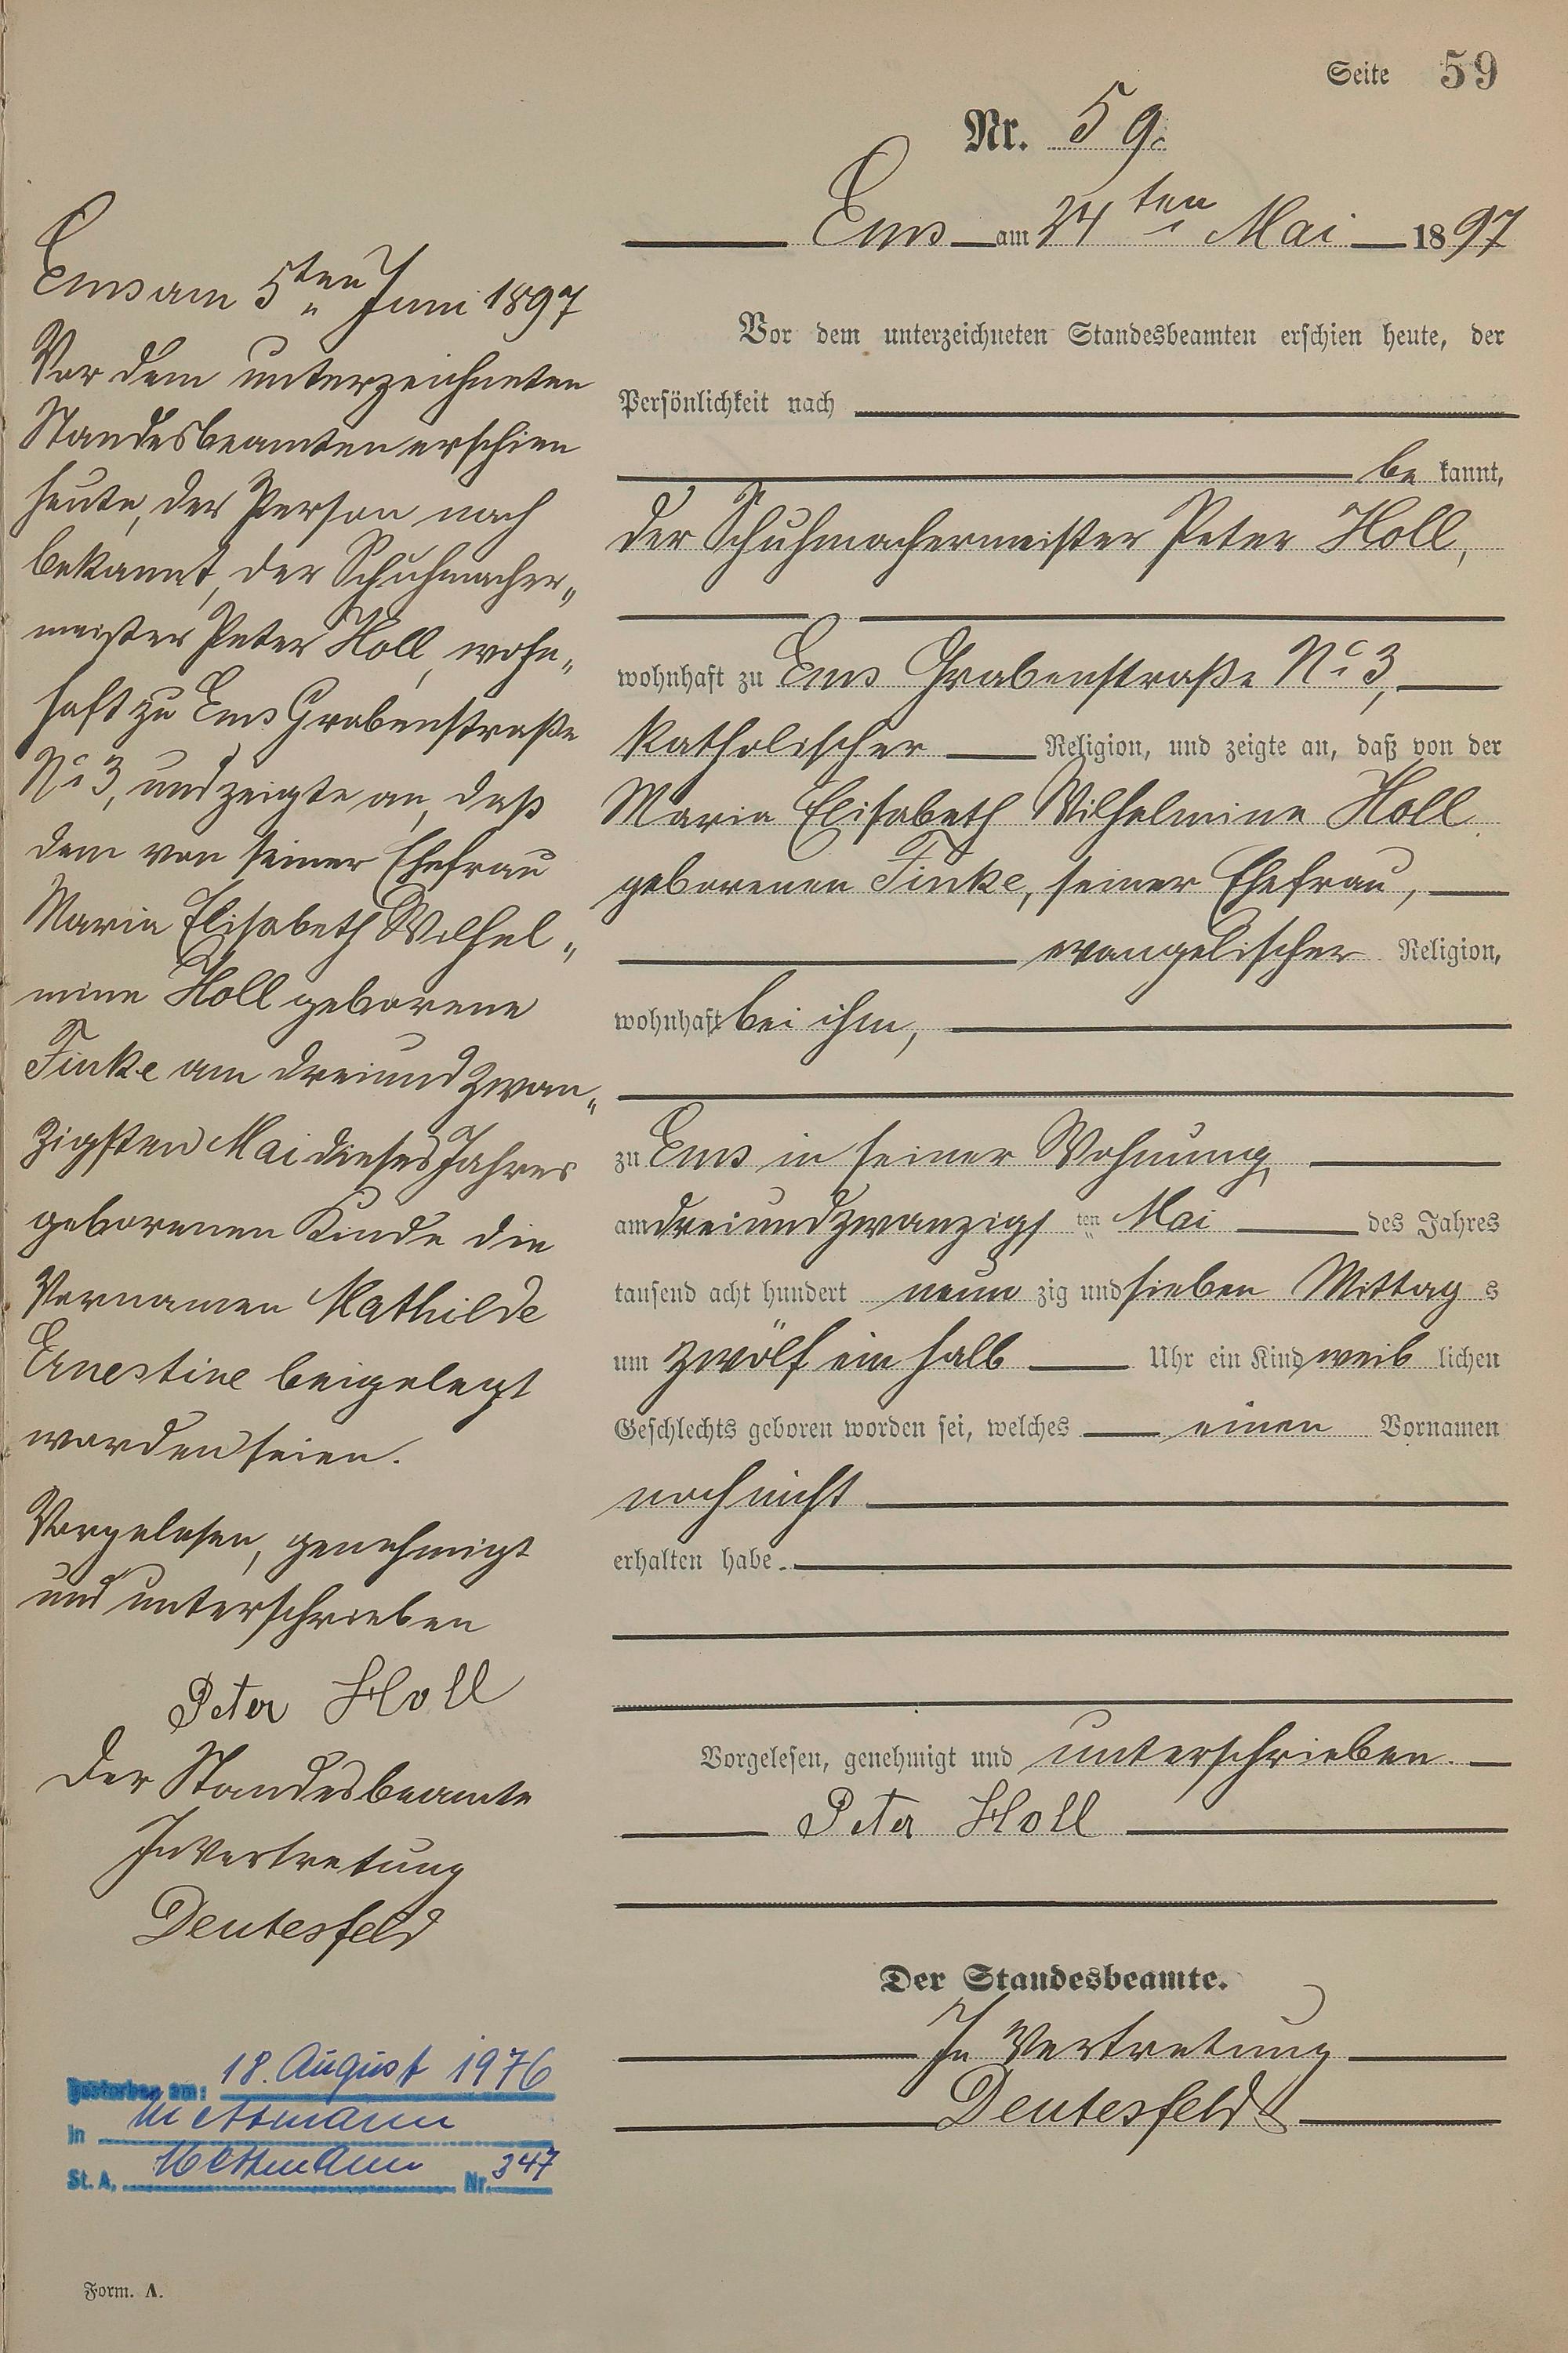 Seite 59
Nr. 59.
Ems am 24ten Mai 1897
Vor dem unterzeichneten Standesbeamten erschien heute, der
Persönlichkeit nach
be kannt,
der Schuhmachermeister Peter Holl,
wohnhaft zu Ems Grabenstraße No 3,
katholischer Religion, und zeigte an, daß von der
Maria Elisabeth Wilhelmine Holl
geborenen Finke, seiner Ehefrau,
evangelischer Religion,
wohnhaft bei ihm,
zu Ems in seiner Wohnung,
am dreiundzwanzigs ten Mai des Jahres
tausend acht hundert neun zig und sieben Mittag s
um zwölf ein halb Uhr ein Kind weib lichen
Geschlechts geboren worden sei, welches einen Vornamen
noch nicht
erhalten habe.
Vorgelesen, genehmigt und unterschrieben.
Peter Holl
Der Standesbeamte.
In Vertretung
Deutesfeld
Ems am 5ten Juni 1897
Vor dem unterzeichneten
Standesbeamten erschien
heute, der Person nach
bekannt, der Schuhmacher„
meister Peter Holl, wohn„
haft zu Ems Grabenstraße
No 3, und zeigte an, daß
dem von seiner Ehefrau
Maria Elisabeth Wilhel„
mine Holl geborene
Finke am dreiundzwan„
zigsten Mai dieses Jahres
geborenen Kinde die
Vornamen Mathilde
Ernestine beigelegt
worden seien.
Vorgelesen, genehmigt
und unterschrieben
Peter Holl
Der Standesbeamte
In Vertretung
Deutesfeld
gestorben am: 18. August 1976
in Mettmann
St. A. Mettmann Nr. 347
Form. A.